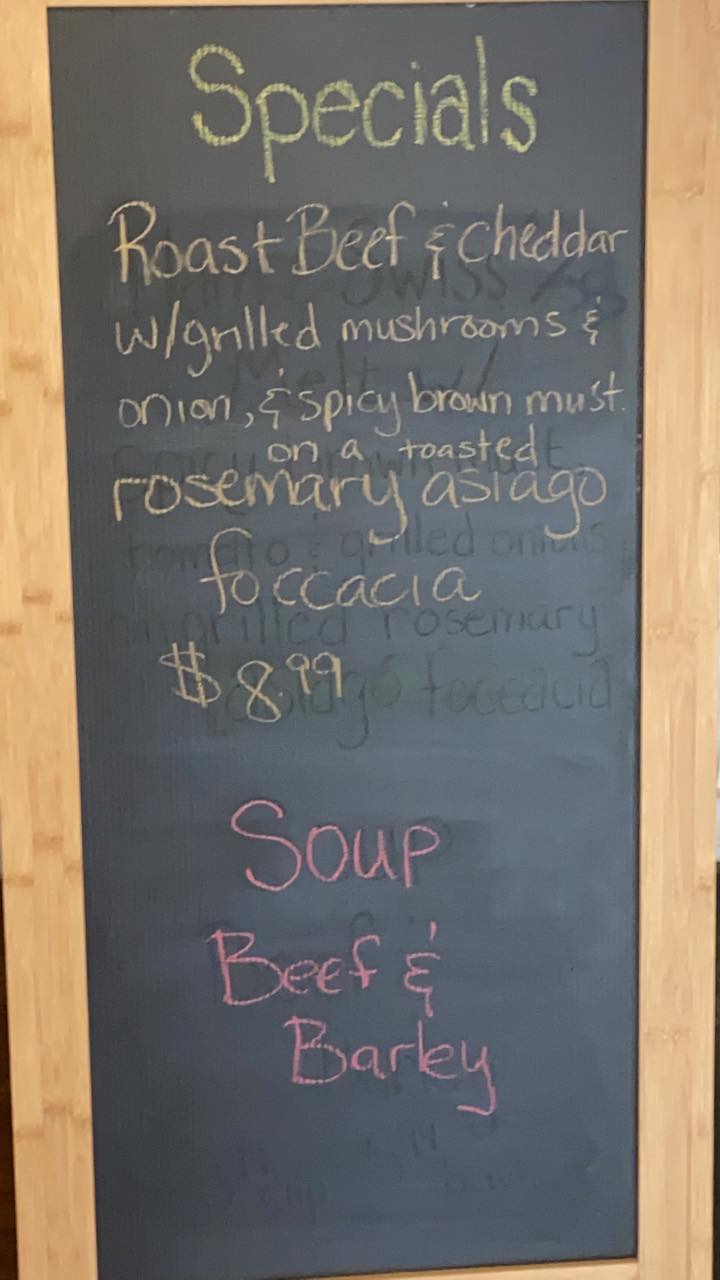 Specials
Roast Beef & Cheddar
w/grilled mushrooms &
onion, & spicy brown must.
on a toasted
rosemary asiago
foccacia
$8.99
Soup
Beef &
Barley